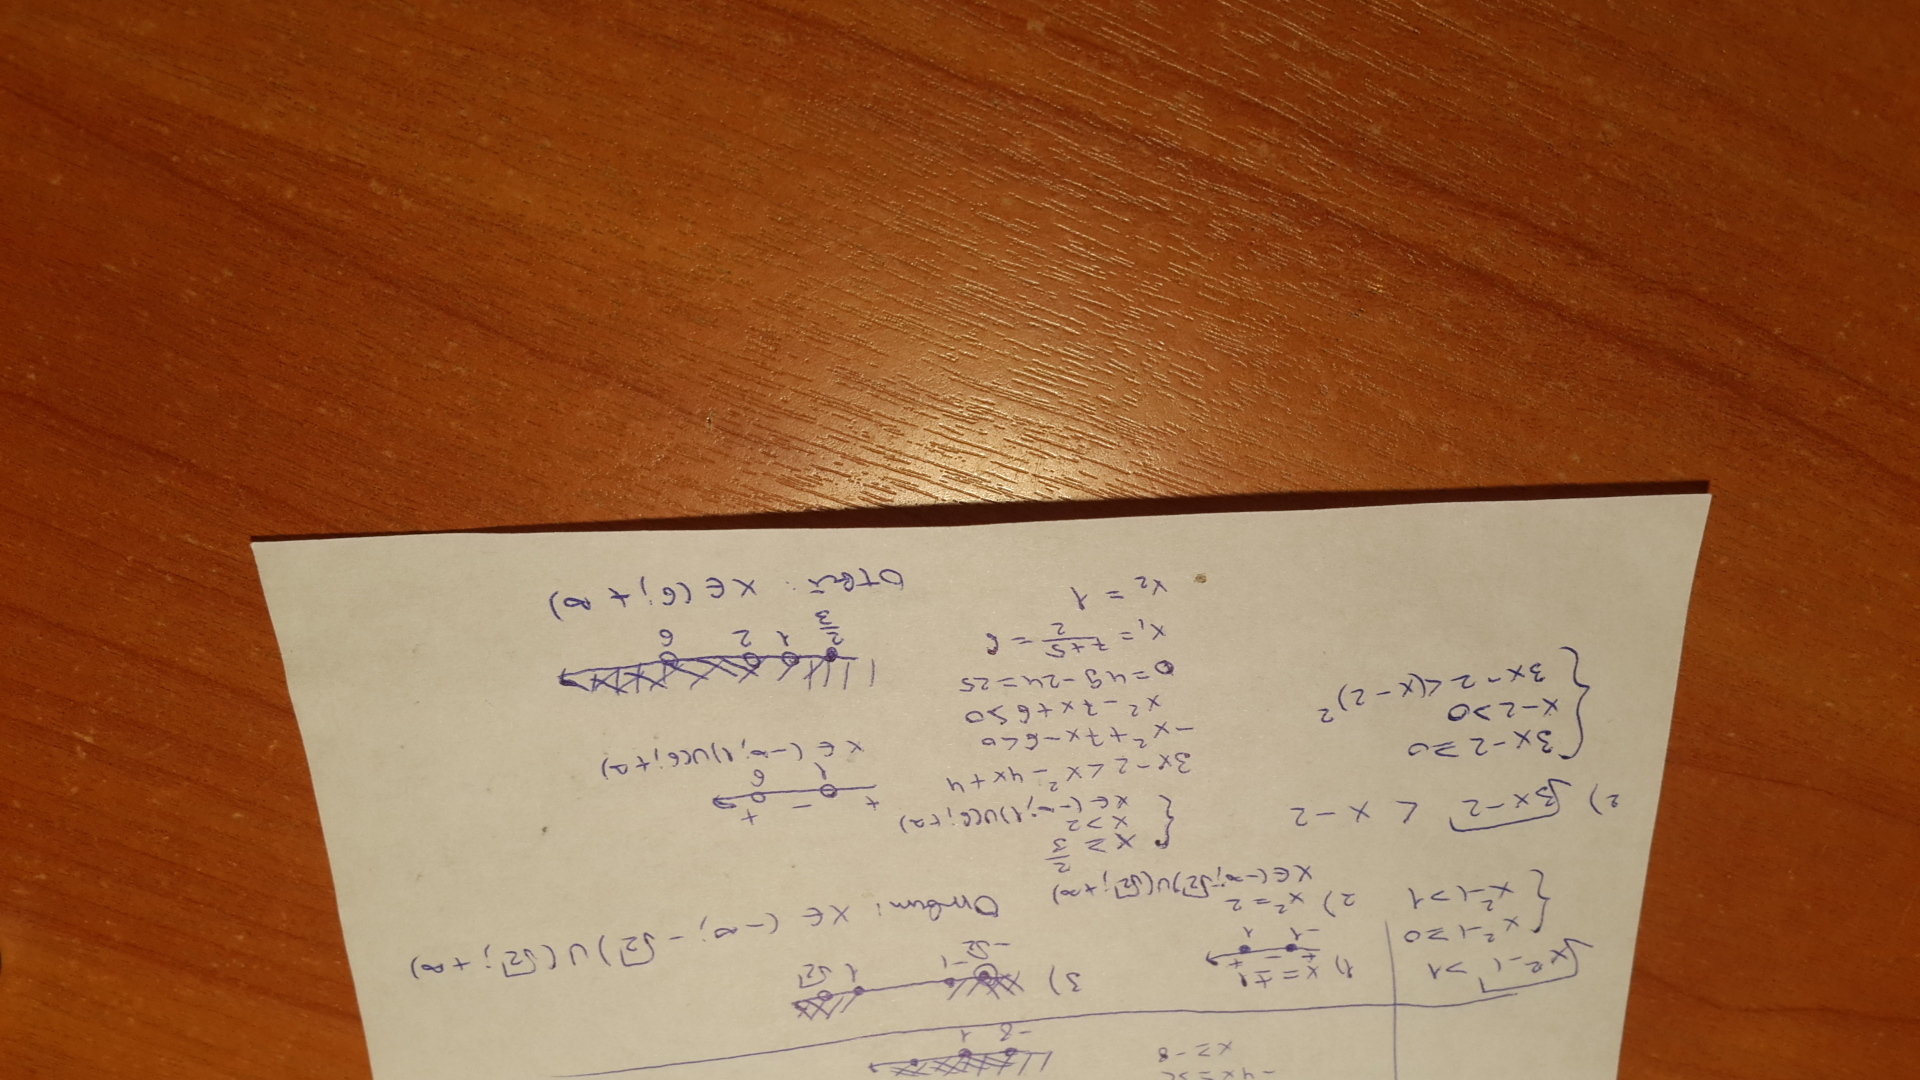 -8 1
x ≥ -8
√x²-1 > 1
{ x²-1 ≥ 0
x²-1 > 1
1) x = ±1
+ - +
-1 1
2) x² = 2
x ∈ (-∞; -√2) ∪ (√2; +∞)
3)
-√2 -1 1 √2
Ответ: x ∈ (-∞; -√2) ∪ (√2; +∞)
2) √3x-2 < x-2
{ 3x-2 ≥ 0
x-2 > 0
3x-2 < (x-2)²
{ x ≥ 2/3
x > 2
x ∈ (-∞; 1) ∪ (6; +∞)
3x-2 < x²-4x+4
-x²+7x-6 < 0
x²-7x+6 > 0
D = 49-24 = 25
x₁ = 7+5/2 = 6
x₂ = 1
+ - +
1 6
x ∈ (-∞; 1) ∪ (6; +∞)
2/3 1 2 6
Ответ: x ∈ (6; +∞)